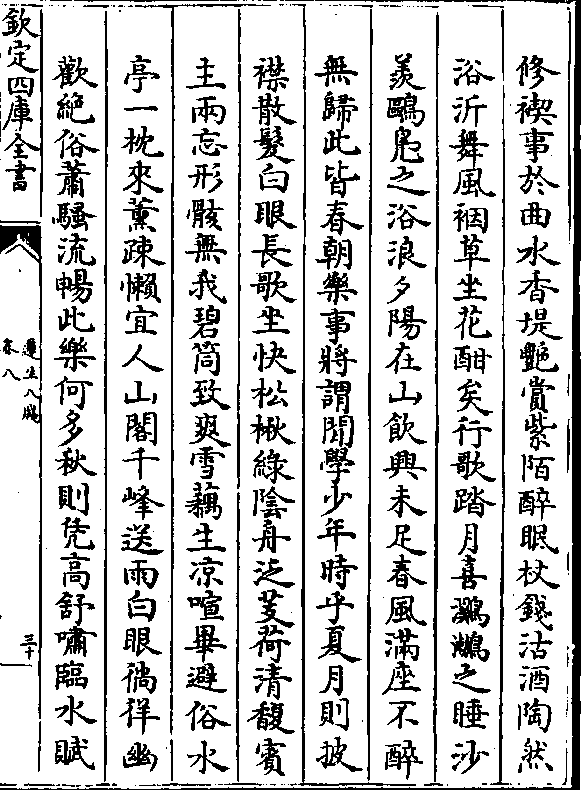 修禊事於曲水香堤艷賞紫陌醉眠杖錢沽酒陶然
浴沂舞風裀草坐花酣矣行歌踏月喜鸂鶒之睡沙
羨鷗鳬之浴浪夕陽在山飲興未足春風滿座不醉
無歸此皆春朝樂事將謂閒學少年時乎夏月則披
襟散髮白眼長歌坐快松楸綠陰舟泛芰荷清馥賓
主兩忘形骸無我碧筒致爽雪藕生凉喧卑避俗水
亭一枕來薰疎懶宜人山閣千峰送雨白眼徜徉幽
歡絶俗蕭騷流暢此樂何多秋則凭高舒嘯臨水賦
欽定四庫全書
遵生八牋
卷八
三十